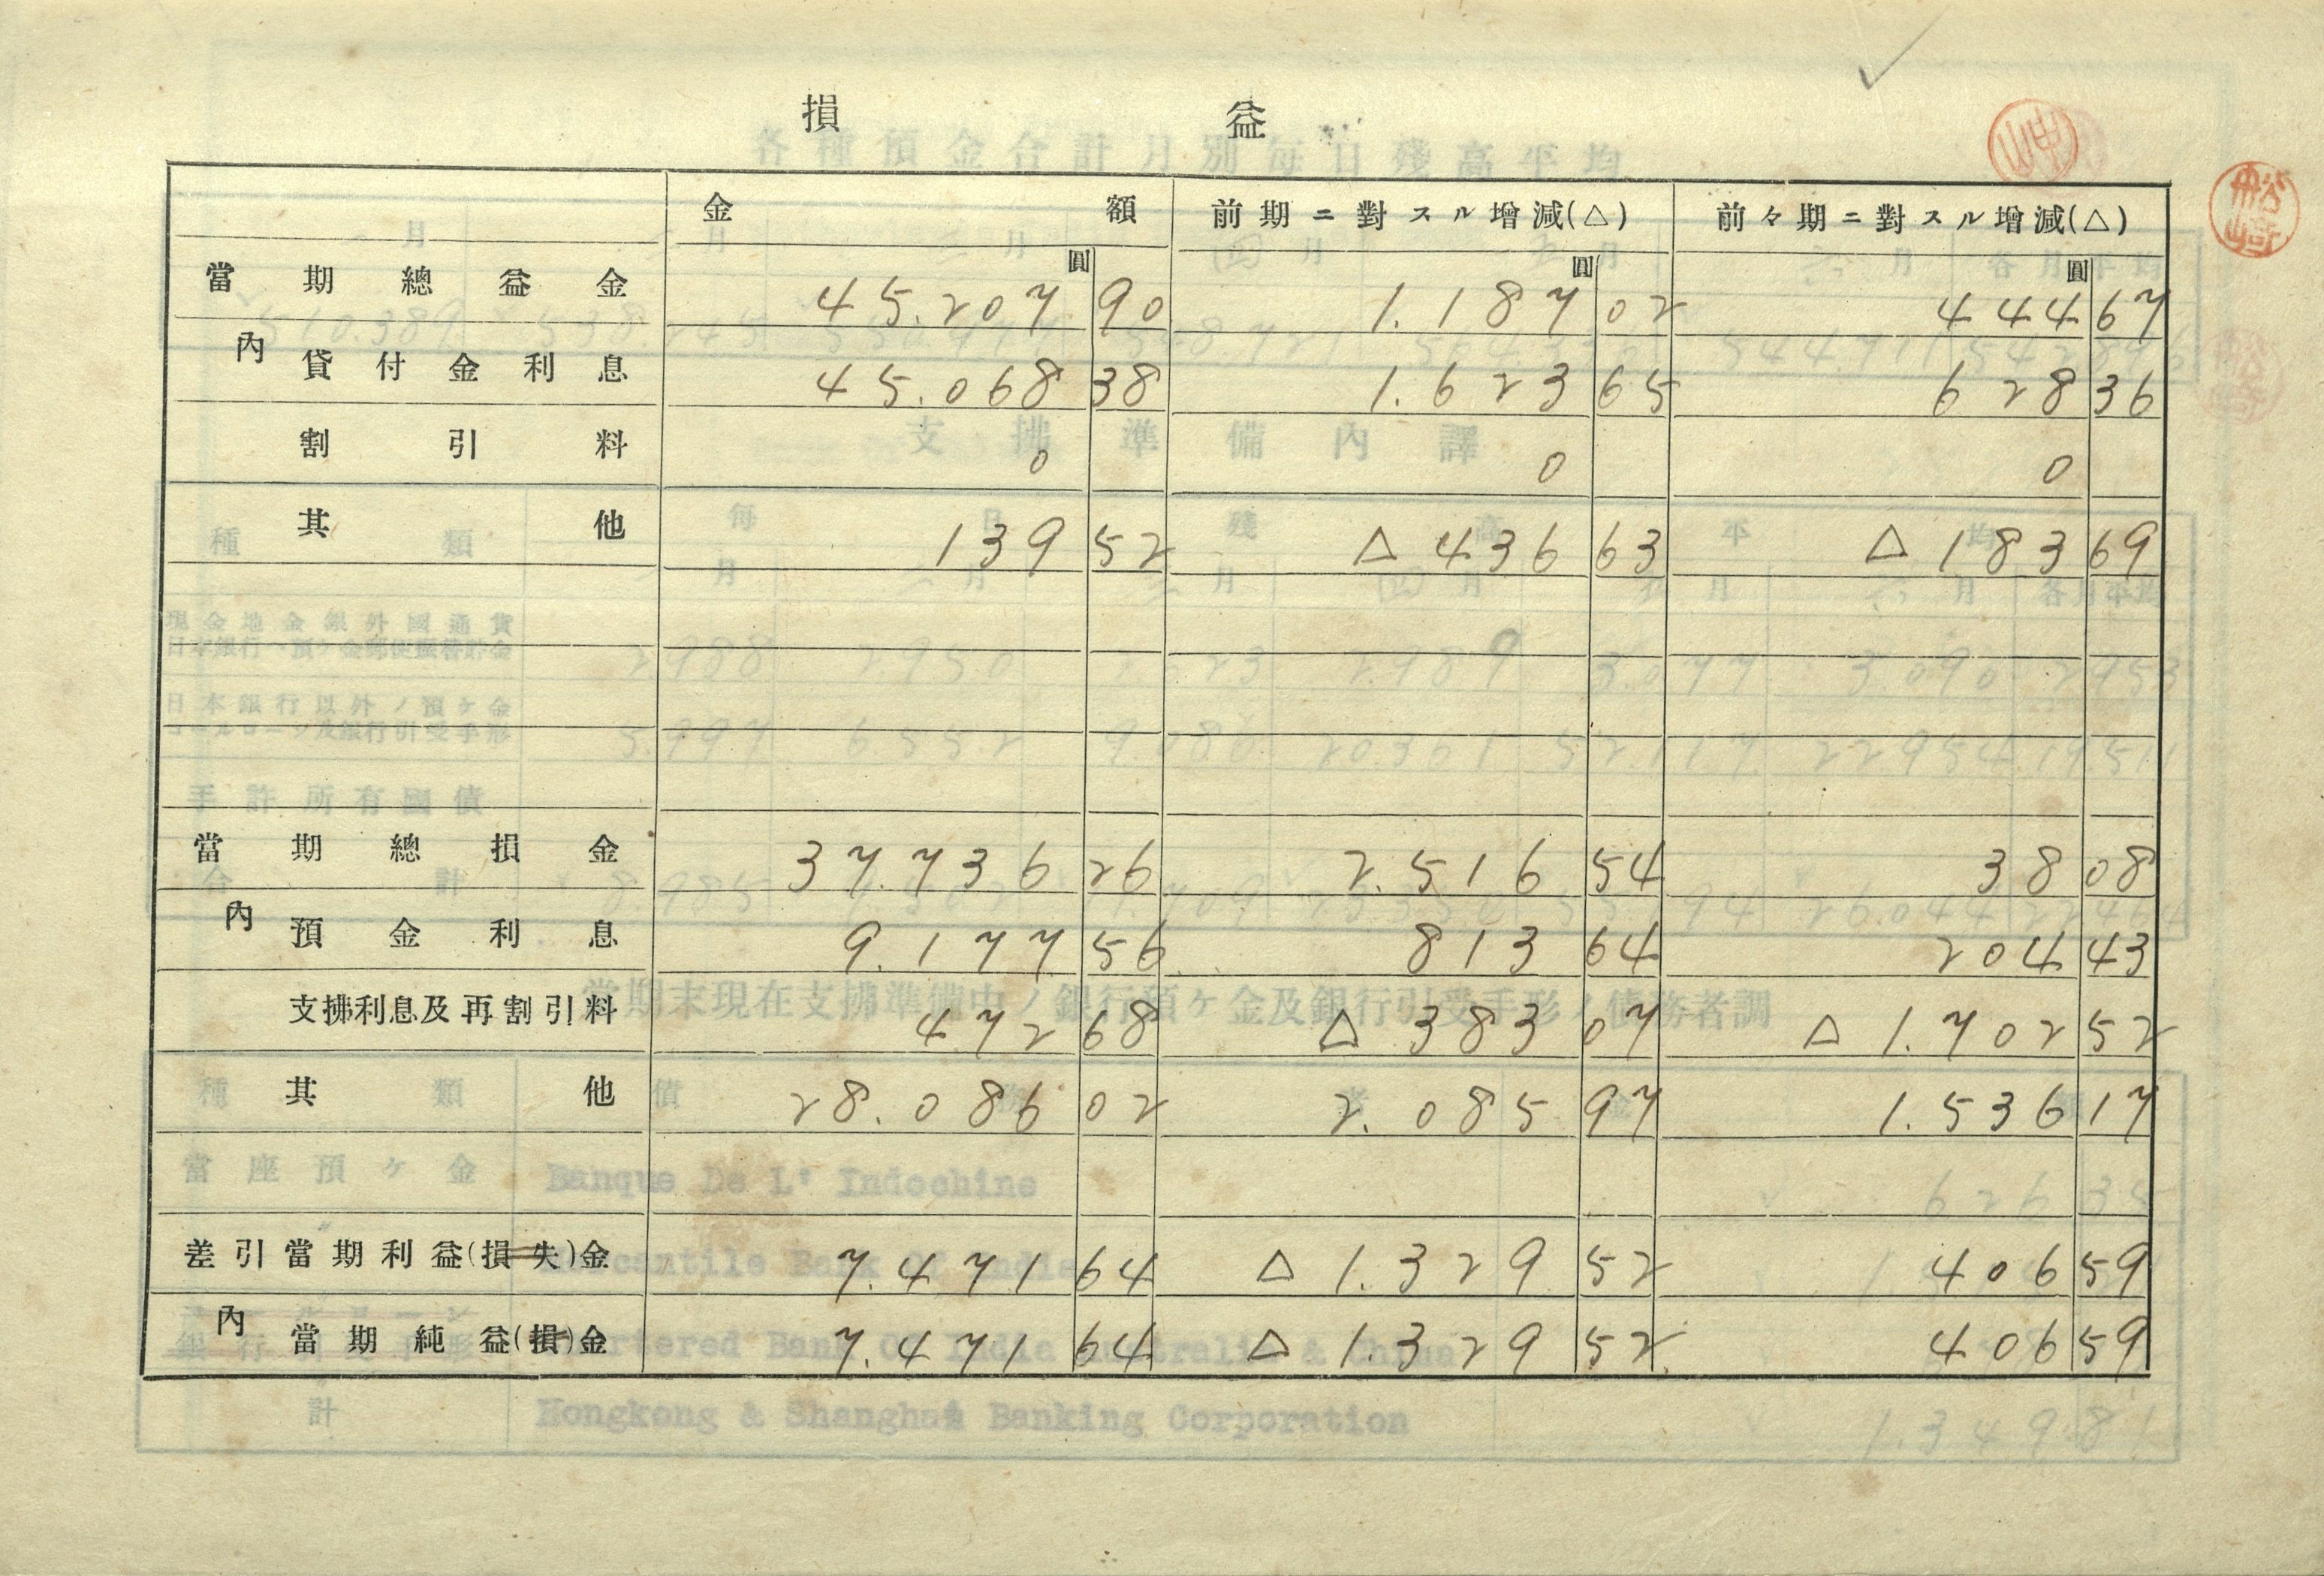 損 益
金 額 前期ニ對スル增減(△) 前々期ニ對スル增減(△)
圓 圓 圓
當期總益金 45.207 90 1.187 02 444 67
內 貸付金利息 45.068 38 1.623 65 628 36
割引料 0 0 0
其他 139 52 △ 436 63 △ 183 69
當期總損金 37.736 26 2.516 54 38 08
內 預金利息 9.177 56 813 64 204 43
支拂利息及再割引料 472 68 △ 383 07 △ 1.702 52
其他 28.086 02 2.085 97 1.536 17
差引當期利益(損失)金 7.471 64 △ 1.329 52 406 59
內 當期純益(損)金 7.471 64 △ 1.329 52 406 59